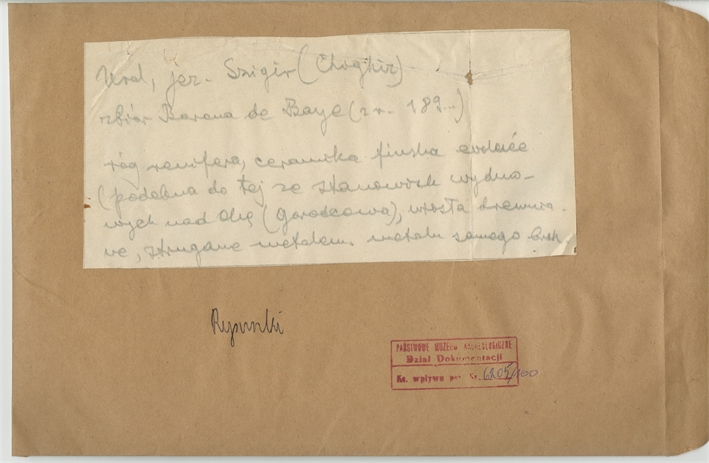 Ural, jez. Szigir (Choghir)
zbiór Barona de Baye (z r. 189...)
róg renifera, ceramika fińska
(podobna do tej ze stanowisk wydmo-
wych nad Oką (Gorodcowa), wiosła drewnia
ne, strugane metalem. metalu samego brak
Rysunki
PAŃSTWOWE MUZEUM ARCHEOLOGICZNE
Dział Dokumentacji
Ks. wpływu poz. Nr. /100